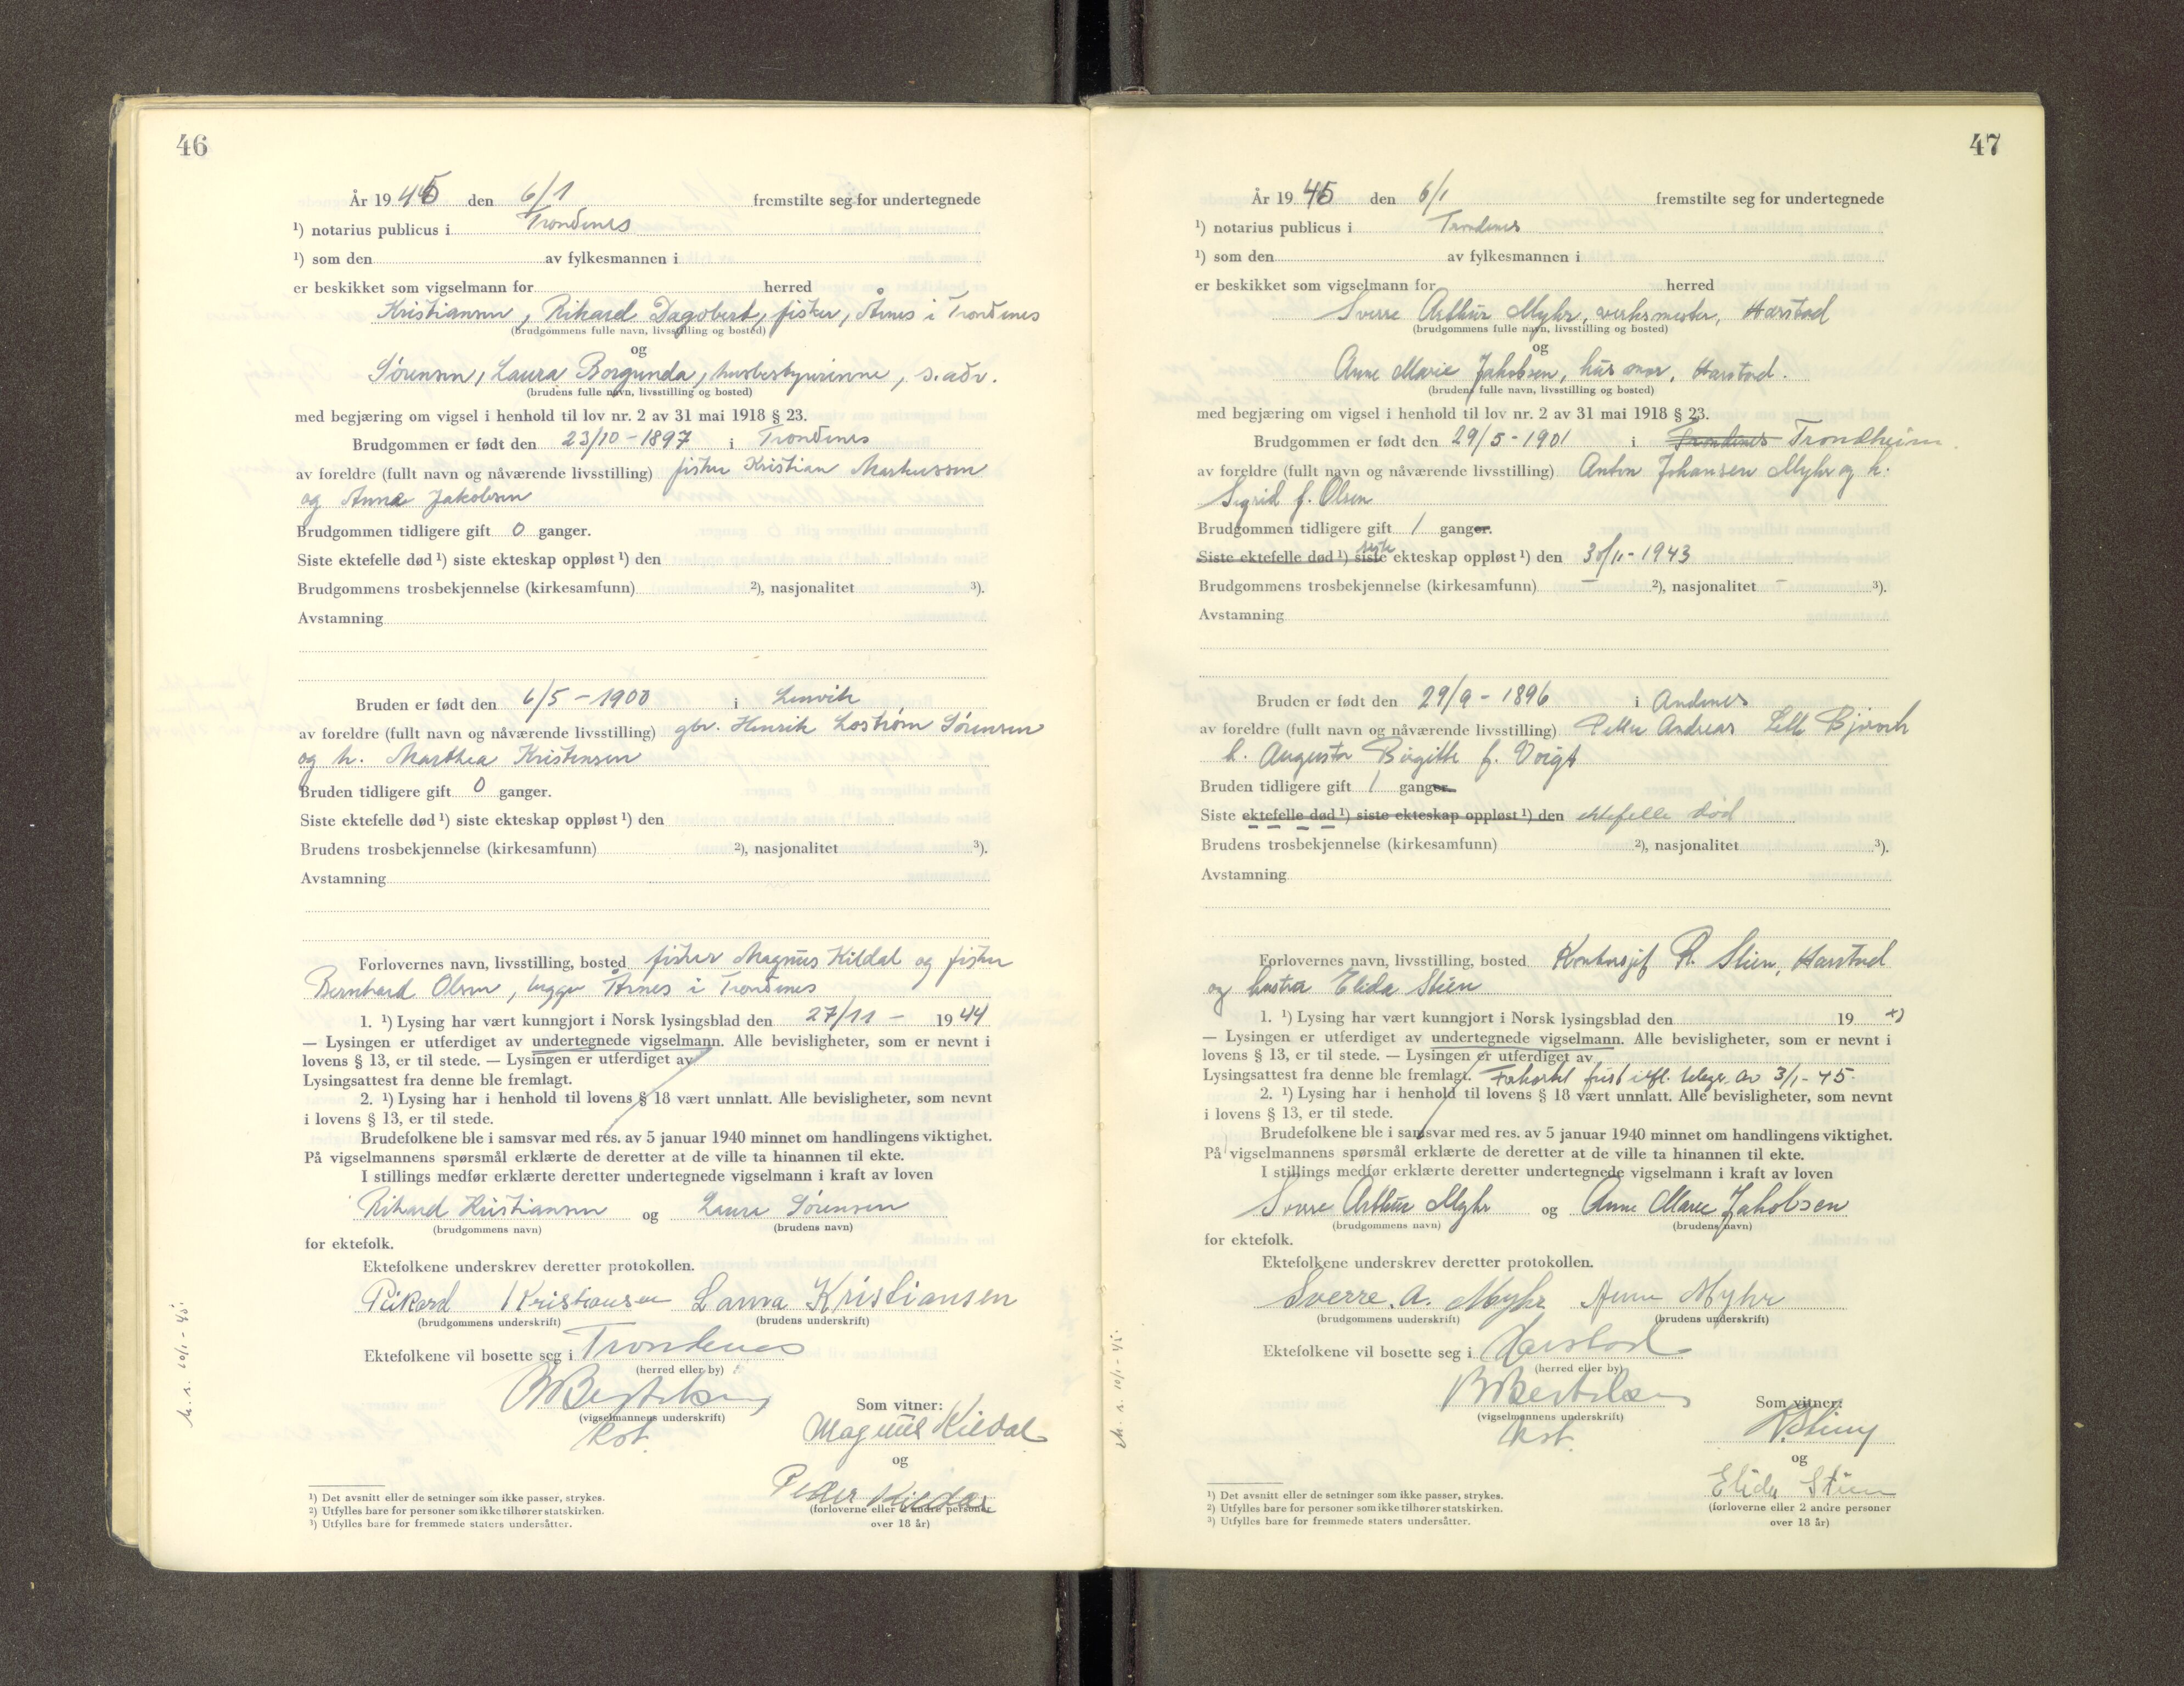 46
År 1945 den 6/1 fremstilte seg for undertegnede
¹) notarius publicus i Trondenes
¹) som den av fylkesmannen i
er beskikket som vigselmann for herred
Kristiansen, Rikard Dagobert, fisker, Årnes i Trondenes
(brudgommens fulle navn, livsstilling og bosted)
og
Sørensen, Laura Borgunda, husbestyrerinne, s. adr.
(brudens fulle navn, livsstilling og bosted)
med begjæring om vigsel i henhold til lov nr. 2 av 31 mai 1918 § 23.
Brudgommen er født den 23/10 - 1897 i Trondenes
av foreldre (fullt navn og nåværende livsstilling) fisker Kristian Markussen
og Anna Jakobsen
Brudgommen tidligere gift 0 ganger.
Siste ektefelle død ¹) siste ekteskap oppløst ¹) den
Brudgommens trosbekjennelse (kirkesamfunn) ²), nasjonalitet ³).
Avstamning
Bruden er født den 6/5 - 1900 i Lenvik
av foreldre (fullt navn og nåværende livsstilling) gbr. Henrik Sørensen
og h. Marthea Kristensen
Bruden tidligere gift 0 ganger.
Siste ektefelle død ¹) siste ekteskap oppløst ¹) den
Brudens trosbekjennelse (kirkesamfunn) ²), nasjonalitet ³).
Avstamning
Forlovernes navn, livsstilling, bosted fisker Magnus Kildal og fisker
Bernhard Olsen, begge Årnes i Trondenes
1. ¹) Lysing har vært kunngjort i Norsk lysingsblad den 27/11 - 1944
— Lysingen er utferdiget av undertegnede vigselmann. Alle bevisligheter, som er nevnt i
lovens § 13, er til stede. — Lysingen er utferdiget av
Lysingsattest fra denne ble fremlagt.
2. ¹) Lysing har i henhold til lovens § 18 vært unnlatt. Alle bevisligheter, som nevnt
i lovens § 13, er til stede.
Brudefolkene ble i samsvar med res. av 5 januar 1940 minnet om handlingens viktighet.
På vigselmannens spørsmål erklærte de deretter at de ville ta hinannen til ekte.
I stillings medfør erklærte deretter undertegnede vigselmann i kraft av loven
Rikard Kristiansen og Laura Sørensen
(brudgommens navn) (brudens navn)
for ektefolk.
Ektefolkene underskrev deretter protokollen.
Rikard Kristiansen Laura Kristiansen
(brudgommens underskrift) (brudens underskrift)
Ektefolkene vil bosette seg i Trondenes
(herred eller by)
Bertelsen
(vigselmannens underskrift)
Som vitner:
Magnus Kildal
og
Peder Kildal
(forloverne eller 2 andre personer
over 18 år)
¹) Det avsnitt eller de setninger som ikke passer, strykes.
²) Utfylles bare for personer som ikke tilhører statskirken.
³) Utfylles bare for fremmede staters undersåtter.
10/1 - 45.
47
År 1945 den 6/1 fremstilte seg for undertegnede
¹) notarius publicus i Trondenes
¹) som den av fylkesmannen i
er beskikket som vigselmann for herred
Sverre Arthur Myhr, verksmester, Harstad
(brudgommens fulle navn, livsstilling og bosted)
og
Anne Marie Jakobsen, husmor, Harstad.
(brudens fulle navn, livsstilling og bosted)
med begjæring om vigsel i henhold til lov nr. 2 av 31 mai 1918 § 23.
Brudgommen er født den 29/5 - 1901 i Trondenes Trondheim
av foreldre (fullt navn og nåværende livsstilling) Anton Johansen Myhr og h.
Sigrid f. Olsen
Brudgommen tidligere gift 1 ganger.
Siste ektefelle død ¹) siste ekteskap oppløst ¹) den 30/11 - 1943
Brudgommens trosbekjennelse (kirkesamfunn) - ²), nasjonalitet - ³).
Avstamning
Bruden er født den 29/9 - 1896 i Andenes
av foreldre (fullt navn og nåværende livsstilling) Petter Andreas
h. Augusta Birgitte f. Voigt
Bruden tidligere gift 1 ganger.
Siste ektefelle død ¹) siste ekteskap oppløst ¹) den ektefelle død
Brudens trosbekjennelse (kirkesamfunn) ²), nasjonalitet ³).
Avstamning
Forlovernes navn, livsstilling, bosted Kontorsjef R. Stien, Harstad
og hustru Elida Stien
1. ¹) Lysing har vært kunngjort i Norsk lysingsblad den 19 x)
— Lysingen er utferdiget av undertegnede vigselmann. Alle bevisligheter, som er nevnt i
lovens § 13, er til stede. — Lysingen er utferdiget av
Lysingsattest fra denne ble fremlagt. Forkortet frist ifl. telegr. av 3/1 - 45.
2. ¹) Lysing har i henhold til lovens § 18 vært unnlatt. Alle bevisligheter, som nevnt
i lovens § 13, er til stede.
Brudefolkene ble i samsvar med res. av 5 januar 1940 minnet om handlingens viktighet.
På vigselmannens spørsmål erklærte de deretter at de ville ta hinannen til ekte.
I stillings medfør erklærte deretter undertegnede vigselmann i kraft av loven
Sverre Arthur Myhr og Anne Marie Jakobsen
(brudgommens navn) (brudens navn)
for ektefolk.
Ektefolkene underskrev deretter protokollen.
Sverre. A. Myhr Anne Myhr
(brudgommens underskrift) (brudens underskrift)
Ektefolkene vil bosette seg i Harstad
(herred eller by)
Bertelsen
(vigselmannens underskrift)
Som vitner:
R. Stien
og
Elida Stien
(forloverne eller 2 andre personer
over 18 år)
¹) Det avsnitt eller de setninger som ikke passer, strykes.
²) Utfylles bare for personer som ikke tilhører statskirken.
³) Utfylles bare for fremmede staters undersåtter.
10/1 - 45.